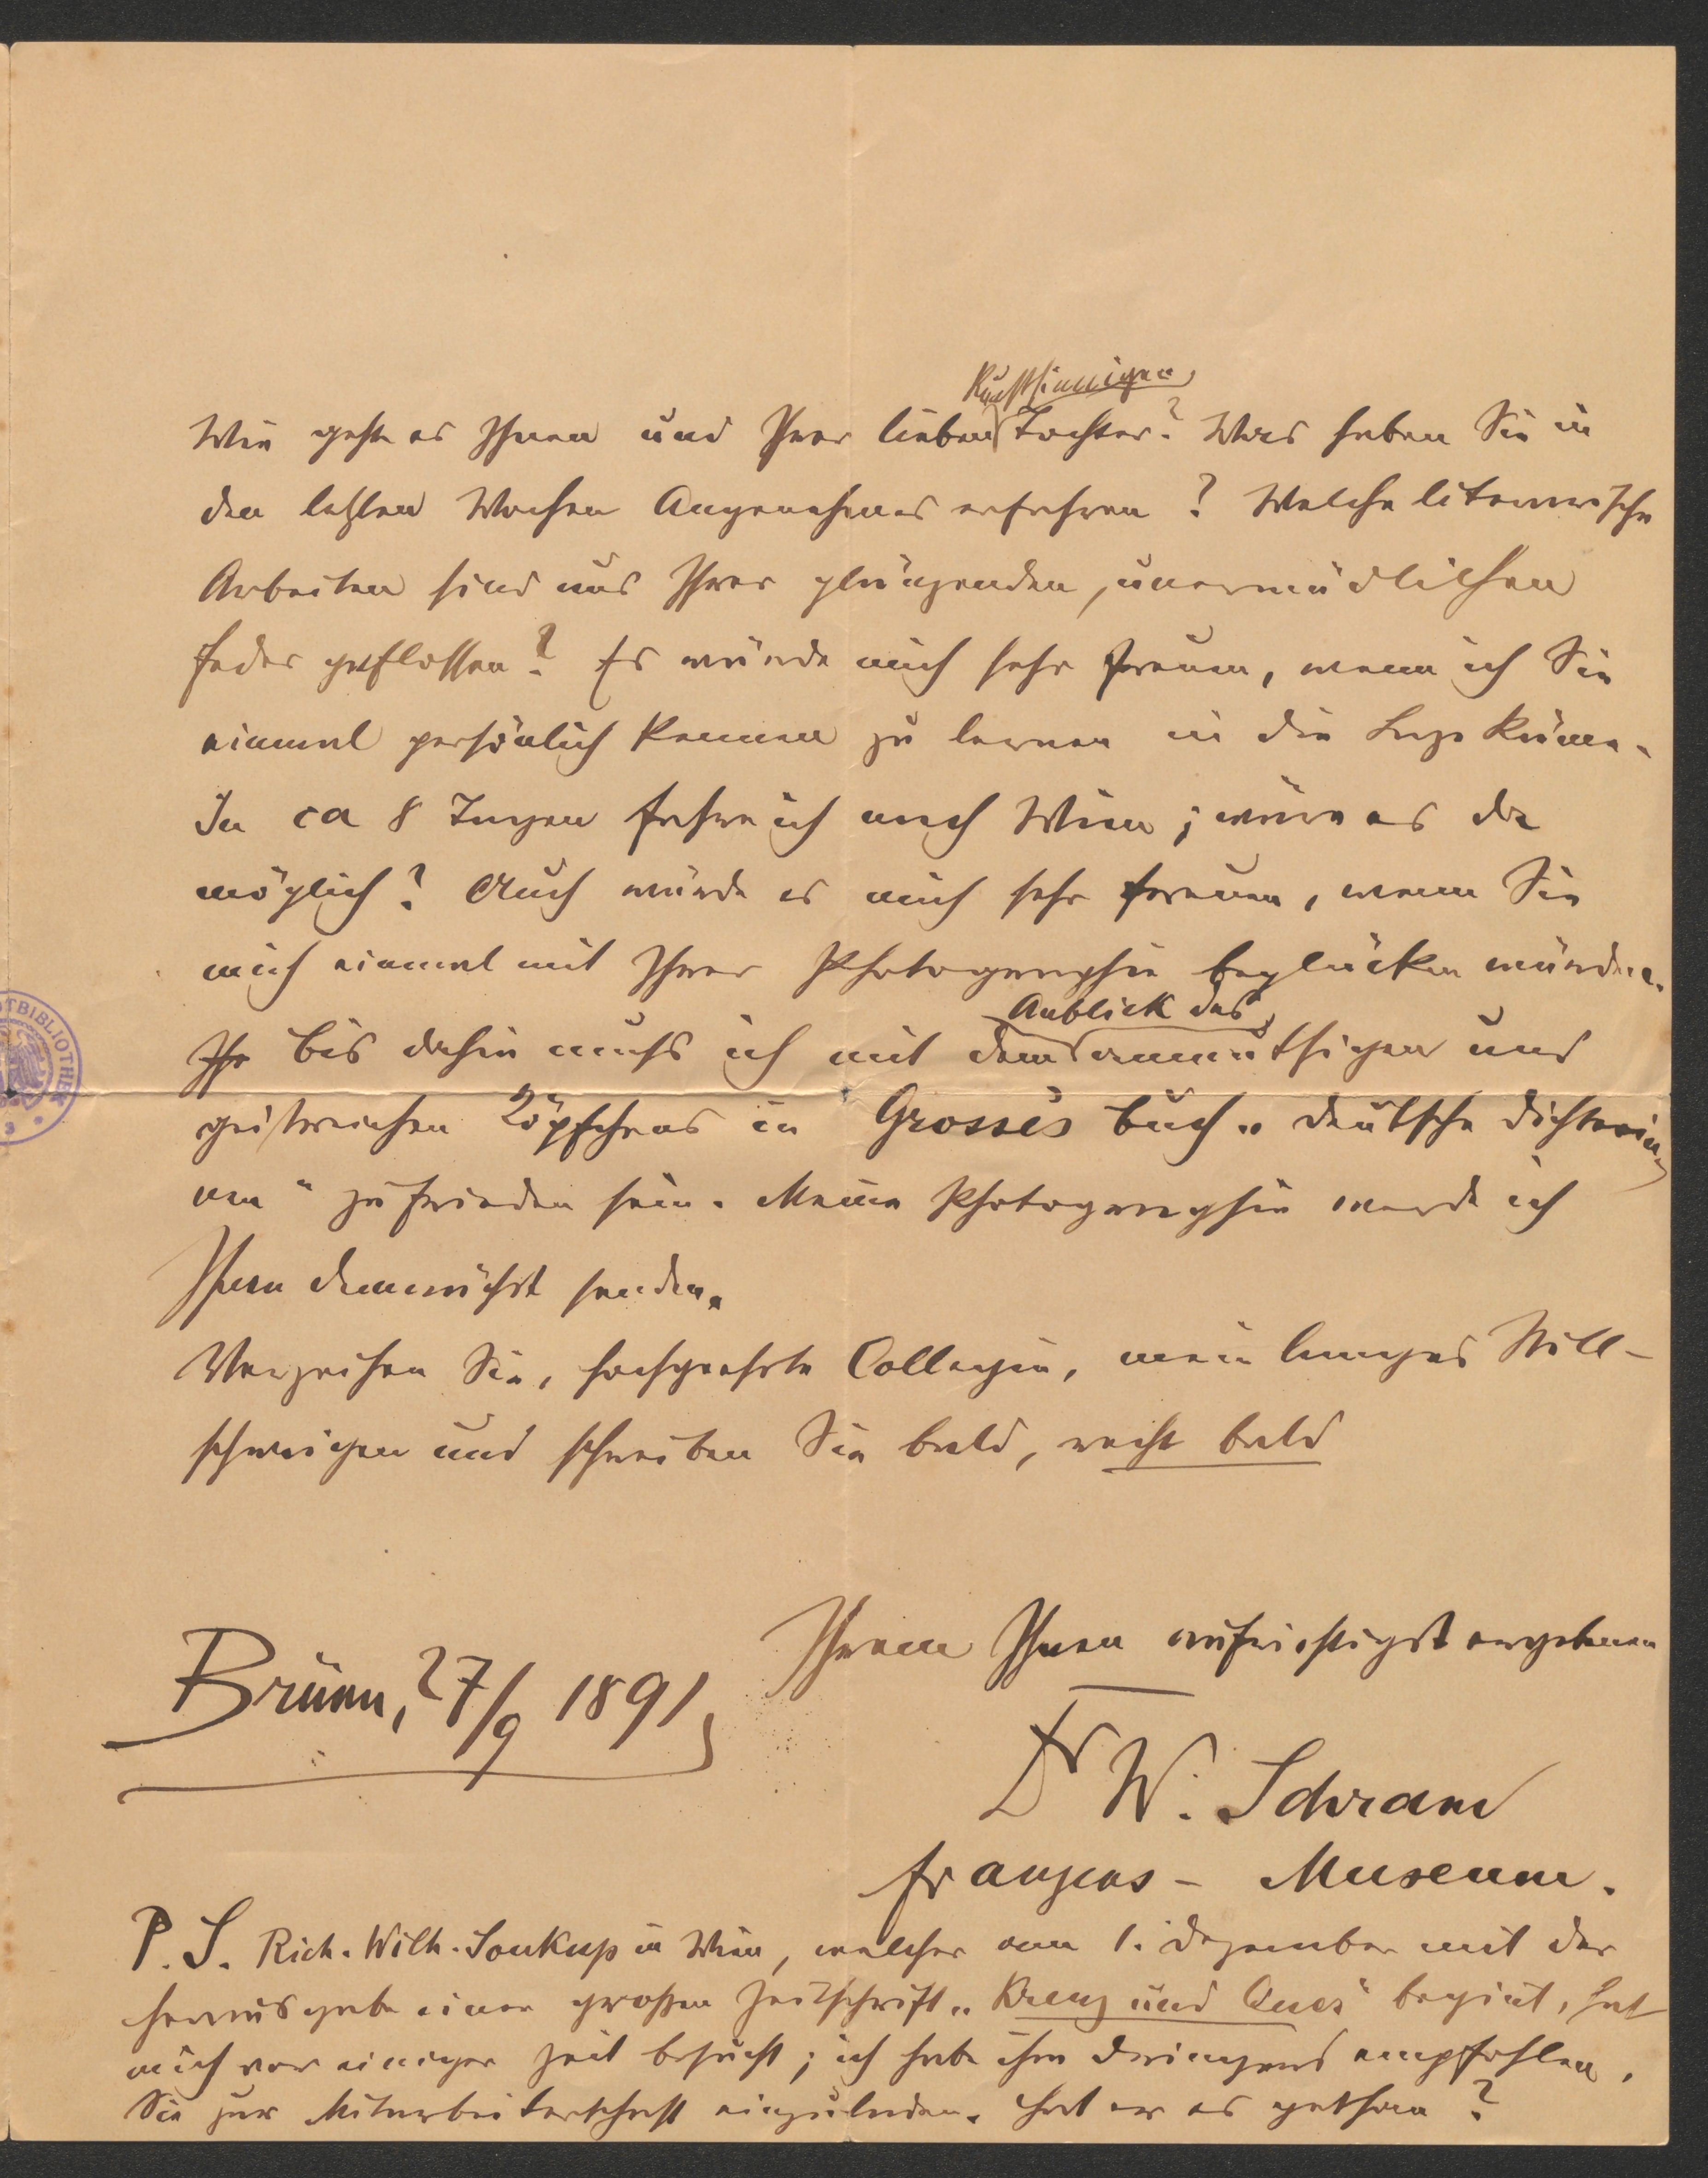 kunstsinnigen
Wie geht es Ihnen und Ihrer lieben Tochter? Was haben Sie in
den letzten Wochen Angenehmes erfahren? Welche literarische
Arbeiten sind aus Ihrer glänzenden, unermüdlichen
Feder geflossen? Es würde mich sehr freuen, wenn ich Sie
einmal persönlich kennen zu lernen in die Lage käme.
In ca 8 Tagen fahre ich nach Wien; wäre es da
möglich? Auch würde es mich sehr freuen, wenn Sie
mich einmal mit Ihrer Photographie beglücken würden.
Anblick des
bis dahin muß ich mit dem anmuthigen und
geistreichen Köpfchens in Grosse's Buch „Deutsche Dichterin-
nen" zufrieden sein. Meine Photographie werde ich
Ihnen demnächst senden.
Verzeihen Sie, hochgeehrte Collegin, mein langes Still-
schweigen und schreiben Sie bald, recht bald
Ihrem Ihnen aufrichtigst ergebenen
Brünn, 27/9 1891
Dr W. Schram
Franzens-Museum.
P.S. Rich. Wilh. Soukup in Wien, welcher am 1. Dezember mit der
Herausgabe einer großen Zeitschrift „Kreuz und Quer" begint, hat
mich vor einiger Zeit besucht; ich habe ihm dringend empfohlen,
Sie zur Mitarbeiterschaft einzuladen. Hat er es gethan?
OTBIBLIOTHEK